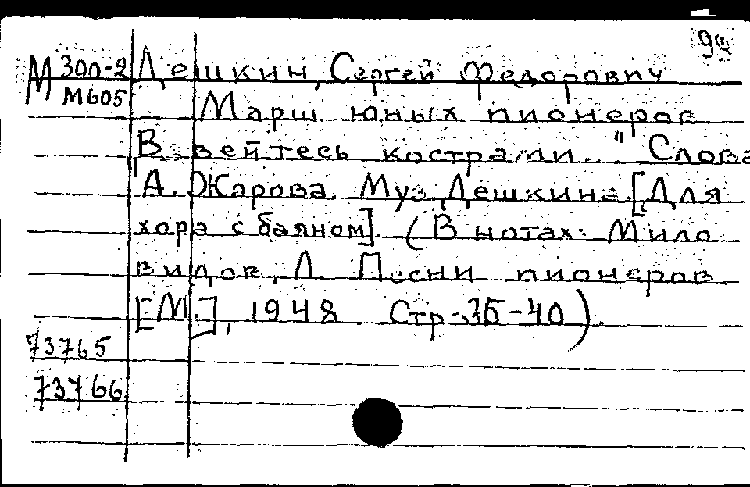 М 300-2 Дешкин, Сергей Федорович
М605 Марш юных пионеров
"Взвейтесь кострами.." Слова
А. Жарова. Муз. Дешкина. [Для
хора с баяном]. (В нотах: Мило
видов, Л. Песни пионеров
[М.], 1948 Стр. 35-40).
73765
73766